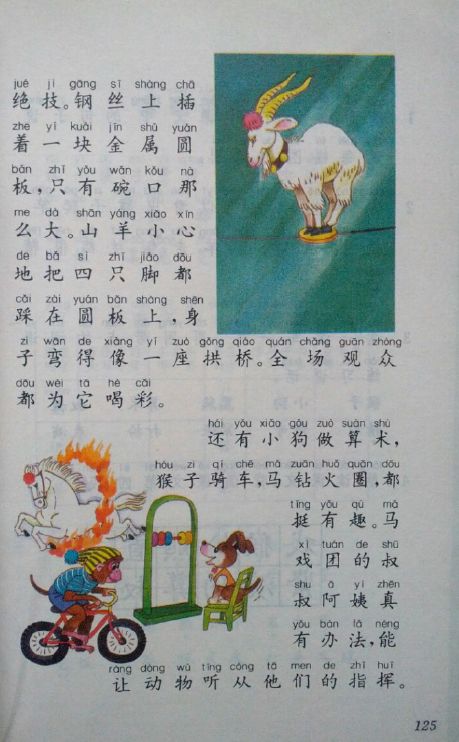 jué jì gāng sī shàng chā
绝技。钢丝上插
zhe yí kuài jīn shǔ yuán
着一块金属圆
bǎn zhǐ yǒu wǎn kǒu nà
板,只有碗口那
me dà shān yáng xiǎo xīn
么大。山羊小心
de bǎ sì zhī jiǎo dōu
地把四只脚都
cǎi zài yuán bǎn shàng shēn
踩在圆板上,身
zi wān de xiàng yí zuò gǒng qiáo quán chǎng guān zhòng
子弯得像一座拱桥。全场观众
dōu wèi tā hè cǎi
都为它喝彩。
hái yǒu xiǎo gǒu zuò suàn shù
还有小狗做算术,
hóu zi qí chē mǎ zuān huǒ quān dōu
猴子骑车,马钻火圈,都
tǐng yǒu qù mǎ
挺有趣。马
xì tuán de shū
戏团的叔
shu ā yí zhēn
叔阿姨真
yǒu bàn fǎ néng
有办法,能
ràng dòng wù tīng cóng tā men de zhǐ huī
让动物听从他们的指挥。
125